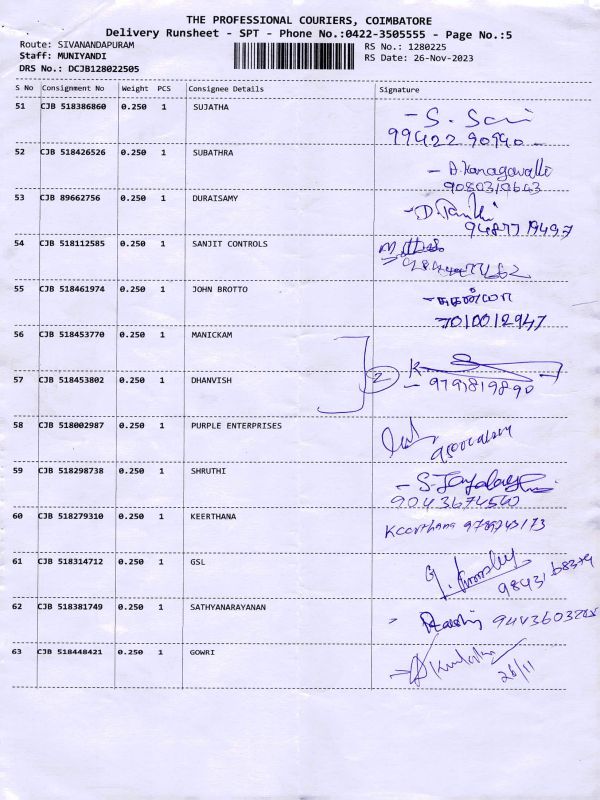 THE PROFESSIONAL COURIERS, COIMBATORE
Delivery Runsheet - SPT - Phone No.:0422-3505555 - Page No.:5
Route: SIVANANDAPURAM
RS No.: 1280225
Staff: MUNIYANDI
RS Date: 26-Nov-2023
DRS No.: DCJB128022505
S No Consignment No Weight PCS Consignee Details Signature
51 CJB 518386860 0.250 1 SUJATHA
99422 90940
52 CJB 518426526 0.250 1 SUBATHRA
53 CJB 89662756 0.250 1 DURAISAMY
54 CJB 518112585 0.250 1 SANJIT CONTROLS
55 CJB 518461974 0.250 1 JOHN BROTTO
7010012947
56 CJB 518453770 0.250 1 MANICKAM
57 CJB 518453802 0.250 1 DHANVISH 2
9791819890
58 CJB 518002987 0.250 1 PURPLE ENTERPRISES
59 CJB 518298738 0.250 1 SHRUTHI
60 CJB 518279310 0.250 1 KEERTHANA
Keerthana
61 CJB 518314712 0.250 1 GSL
62 CJB 518381749 0.250 1 SATHYANARAYANAN
63 CJB 518448421 0.250 1 GOWRI
26/11